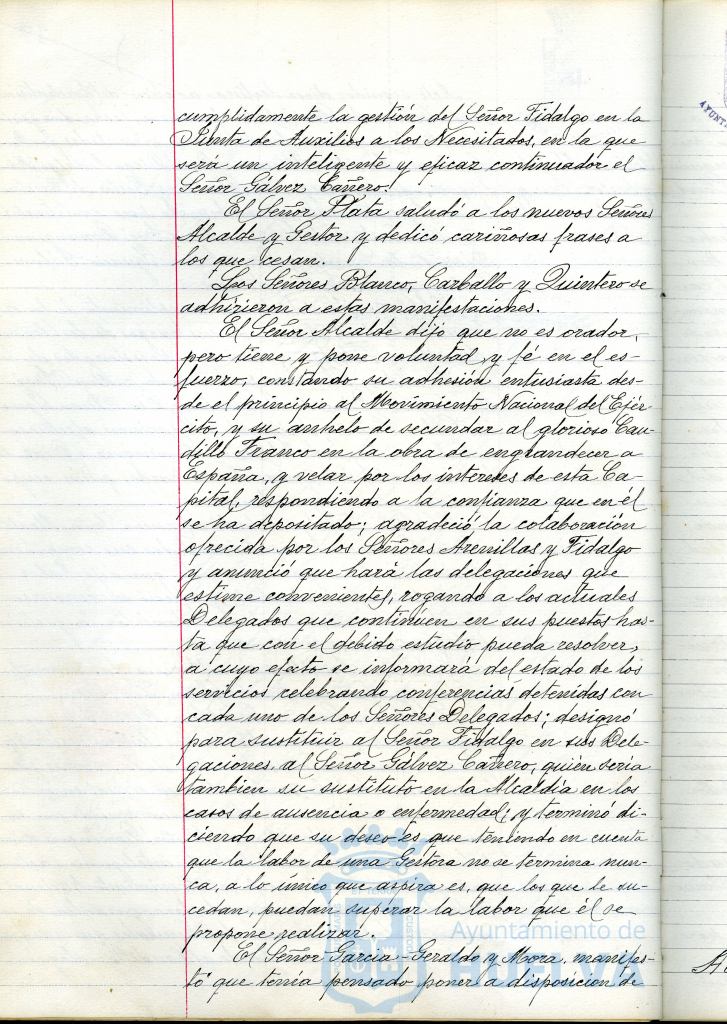 cumplidamente la gestión del Señor Fidalgo en la
Junta de Auxilios a los Necesitados, en la que
será un inteligente y eficaz continuador el
Señor Gálvez Cañero.
El Señor Plata saludó a los nuevos Señores
Alcalde y Gestor y dedicó cariñosas frases a
los que cesan.
Los Señores Blanco, Carballo y Quintero se
adhirieron a estas manifestaciones.
El Señor Alcalde dijo que no es orador,
pero tiene y pone voluntad y fé en el es-
fuerzo, constando su adhesión entusiasta des-
de el principio al Movimiento Nacional del Ejér-
cito, y su anhelo de secundar al glorioso Cau-
dillo Franco en la obra de engrandecer a
España, y velar por los intereses de esta Ca-
pital, respondiendo a la confianza que en él
se ha depositado; agradeció la colaboración
ofrecida por los Señores Arenillas y Fidalgo
y anunció que hará las delegaciones que
estime convenientes, rogando a los actuales
Delegados que continúen en sus puestos has-
ta que con el debido estudio pueda resolver,
a cuyo efecto se informará del estado de los
servicios celebrando conferencias detenidas con
cada uno de los Señores Delegados; designó
para sustituir al Señor Fidalgo en sus Dele-
gaciones al Señor Gálvez Cañero, quién sería
tambien su sustituto en la Alcaldía en los
casos de ausencia o enfermedad; y terminó di-
ciendo que su deseo es que teniendo en cuenta
que la labor de una Gestora no se termina nun-
ca, a lo único que aspira es, que los que le su-
cedan, puedan superar la labor que él se
propone realizar.
El Señor García-Geraldo y Mora, manifes-
tó que tenía pensado poner a disposición de
Ayuntamiento de
HUELVA